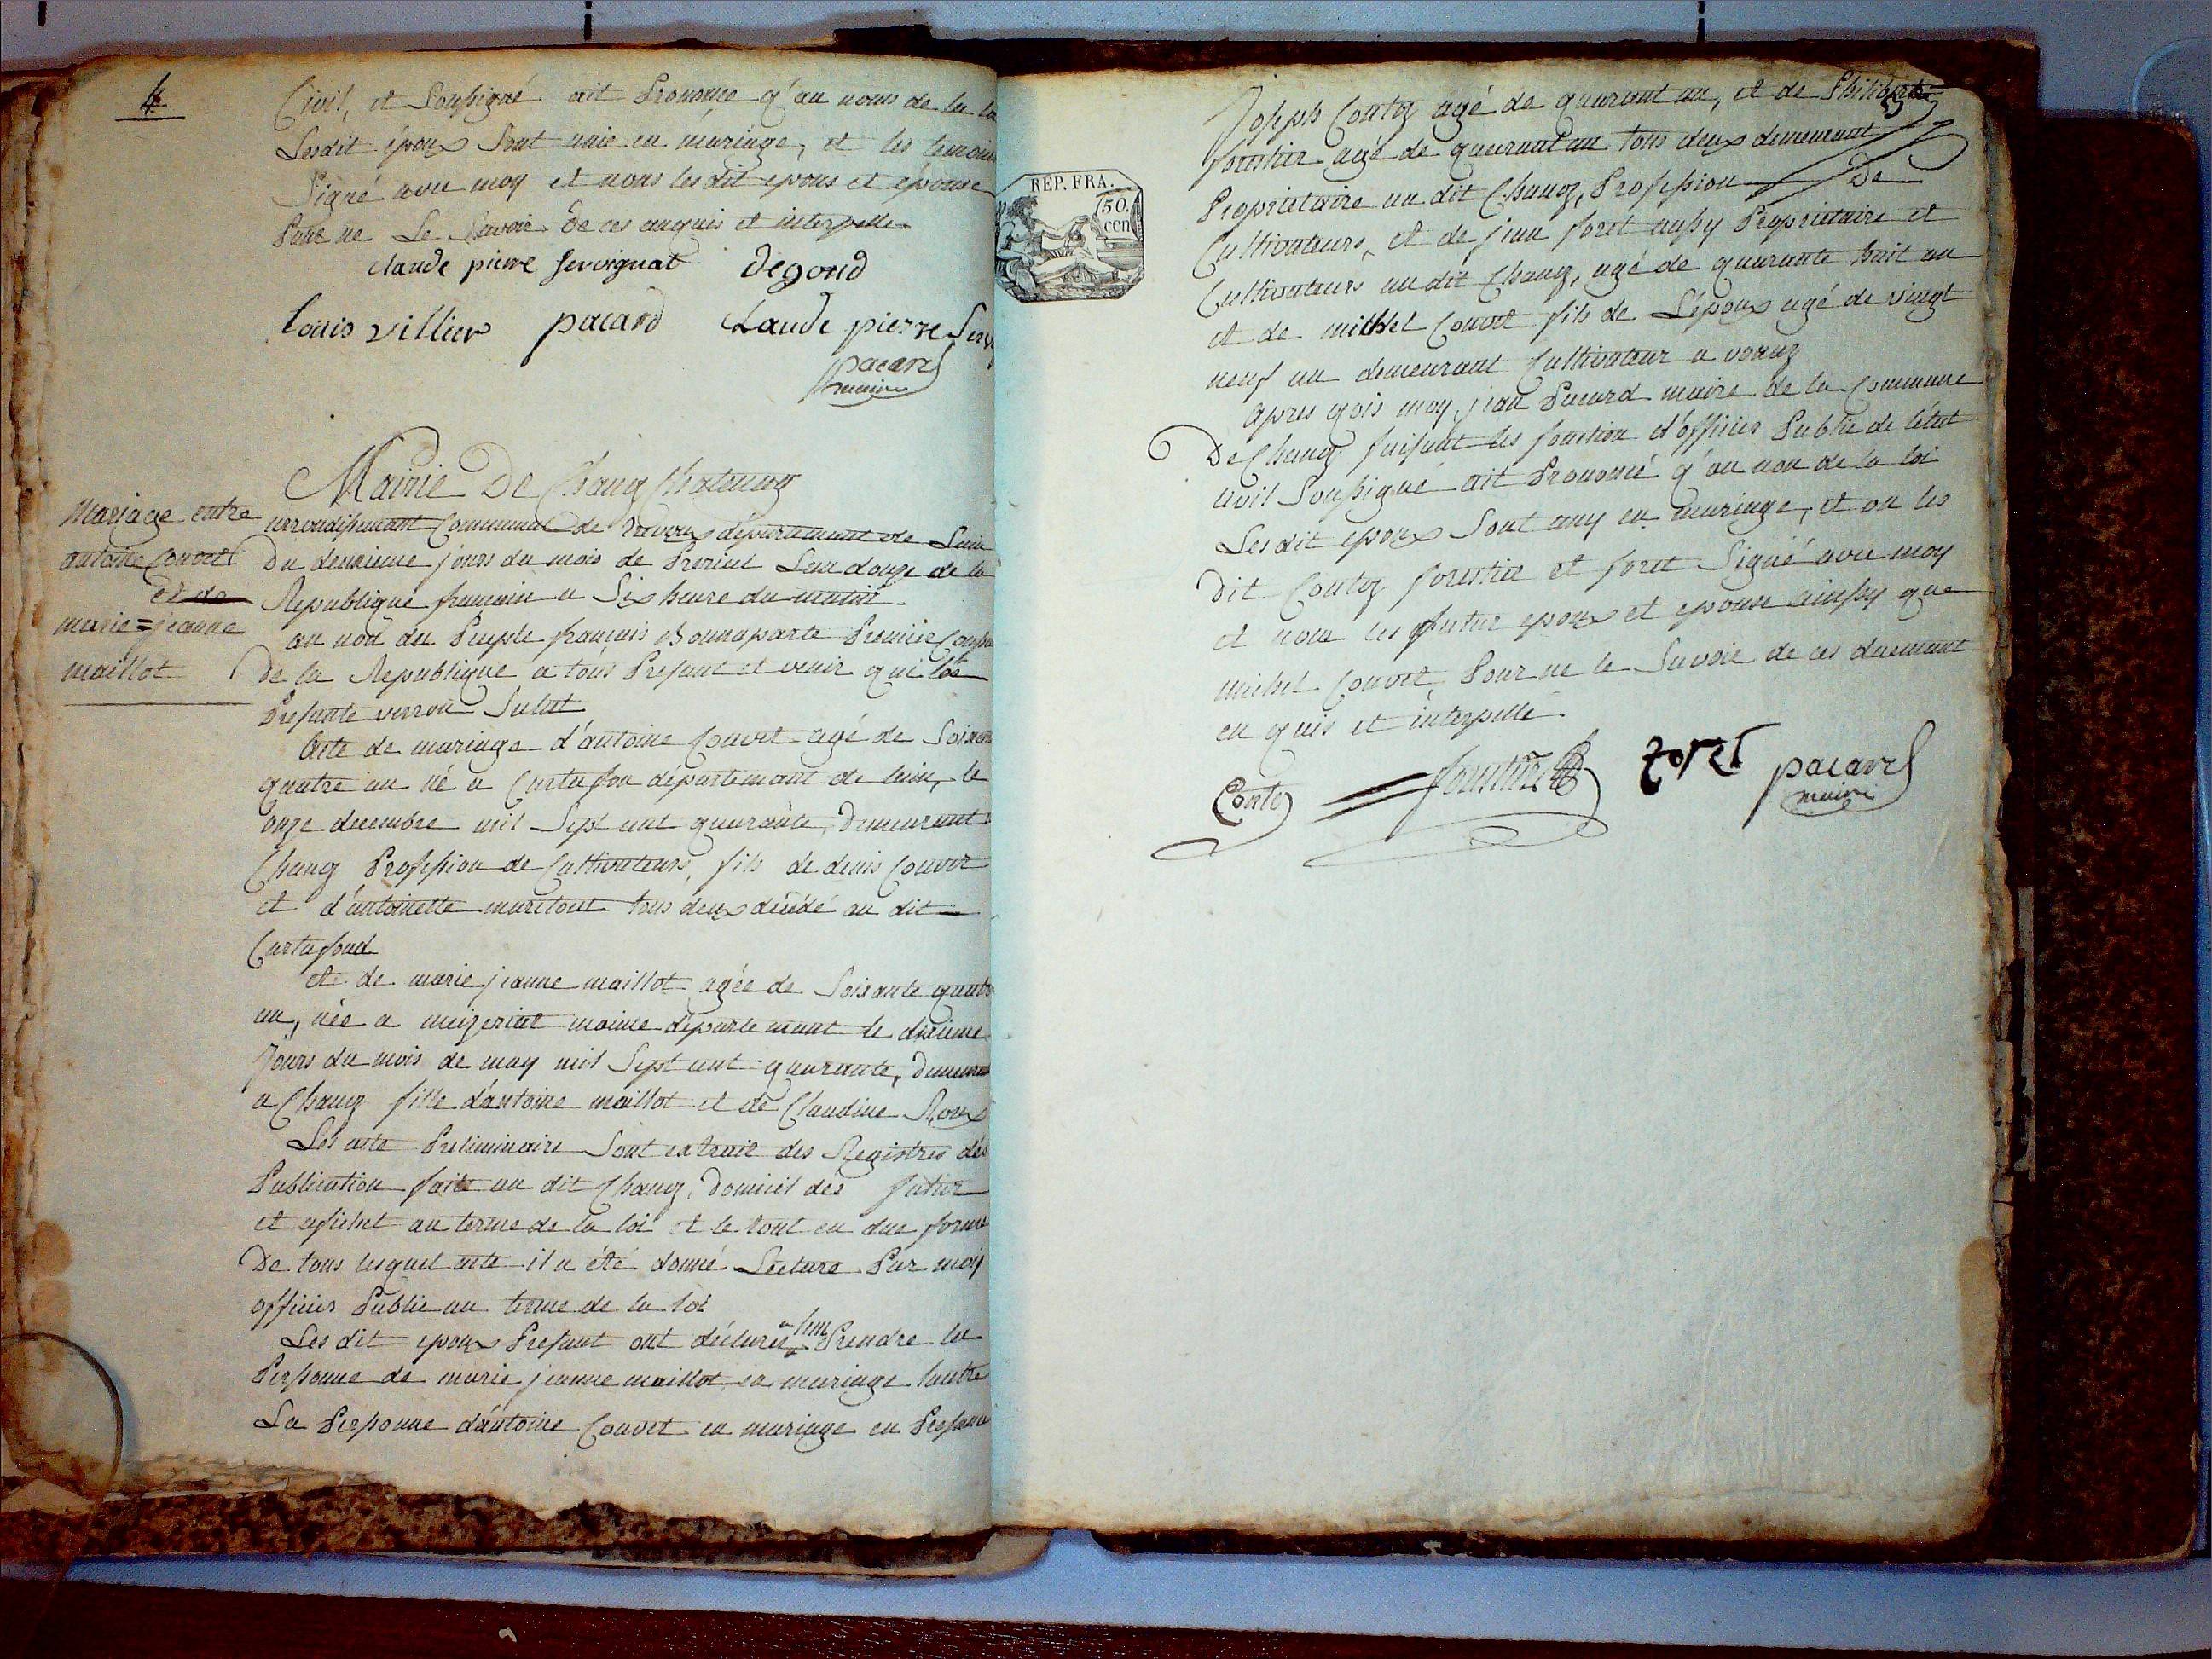 4
Civil, et Soussigné ait Prononce q'au noms de la loi
Lesdit époux Sont unie en mariage, et les temoins
Signé avec moy et nons lesdit epous et epouse
Pour ne Le Savoir de ces enquis et interpelle
claude pierre servignat degond
louis villier pacard Claude pierre Serv
pacard
maire
Mairie De Chanoz Chatenay
Mariage entre
antoine Couvet
et de
marie=jeanne
maillot
arrondissement Communal de Trevoux département de Lain
Du deuxieme jours du mois de Prerial Lan douze de la
Republique francain a Six heure du matin
au non du Peuple francais Bonnaparte Premier Consul
De la Republique a tous Presant et venir qui les
Presante verron Salut
Acte de mariage d'antoine Couvet agé de Soixante
quatre an né a Curtafon départemant de lain, le
onze decembre mil Sept cent quarante, Demeurant a
Chanoz Profession de Cultivateurs, fils de denis Couvet
et d'antoinette tous deux décédé au dit
Curtafond
et de marie jeanne maillot agée de Soixante quatre
an, née a meizeriat maime département le dixieme
Jours du mois de may mil Sept cent quarante, Demeurant
a Chanoz fille d'antoine maillot et de Claudine Roux
Les acte Preliminaire Sont extrait des Registres dés
Publication faite au dit Chanoz, Domicil dés futur
et afichet au terme de la loi et le tout en due forme
De tous lesquel acte il a été donné Lecture Par moy
officier Public au terme de la loi
Les dit epoux Presant ont déclurés Prendre la
Personne de marie jeanne maillot en mariage lautre
La Personne dántoine Couvet en mariage en Presance
REP. FRA.
50.
cen
5
Joseph Contoz agé de quarant an, et de Philiberte
forestier agé de quarant an tous deux demeurant
Proprietaire au dit Chanoz, Profession De
Cultivateurs, et de jean foret aussy Proprietaire et
Cultivateurs au dit Chanoz, agé de quarante huit an
et de michel Couvet fils de L'époux agé de vingt
neuf an demeurant Cultivateur a vonnaz
apres qois moy jean Pacard maire de la Commune
De Chanoz faisant les fonction d'officier Public de l'état
Civil Soussigné ait Prononcé q'au non de la loi
Les dit epoux Sont uny en mariage, et on les
Dit Contoz forestier et foret Signé avec moy
et nom les futur epoux et epouse ainssy que
michel Couvet, Pour ne le Savoir de ces duemant
en quis et interpellé
Contoz forestier foret pacard
maire